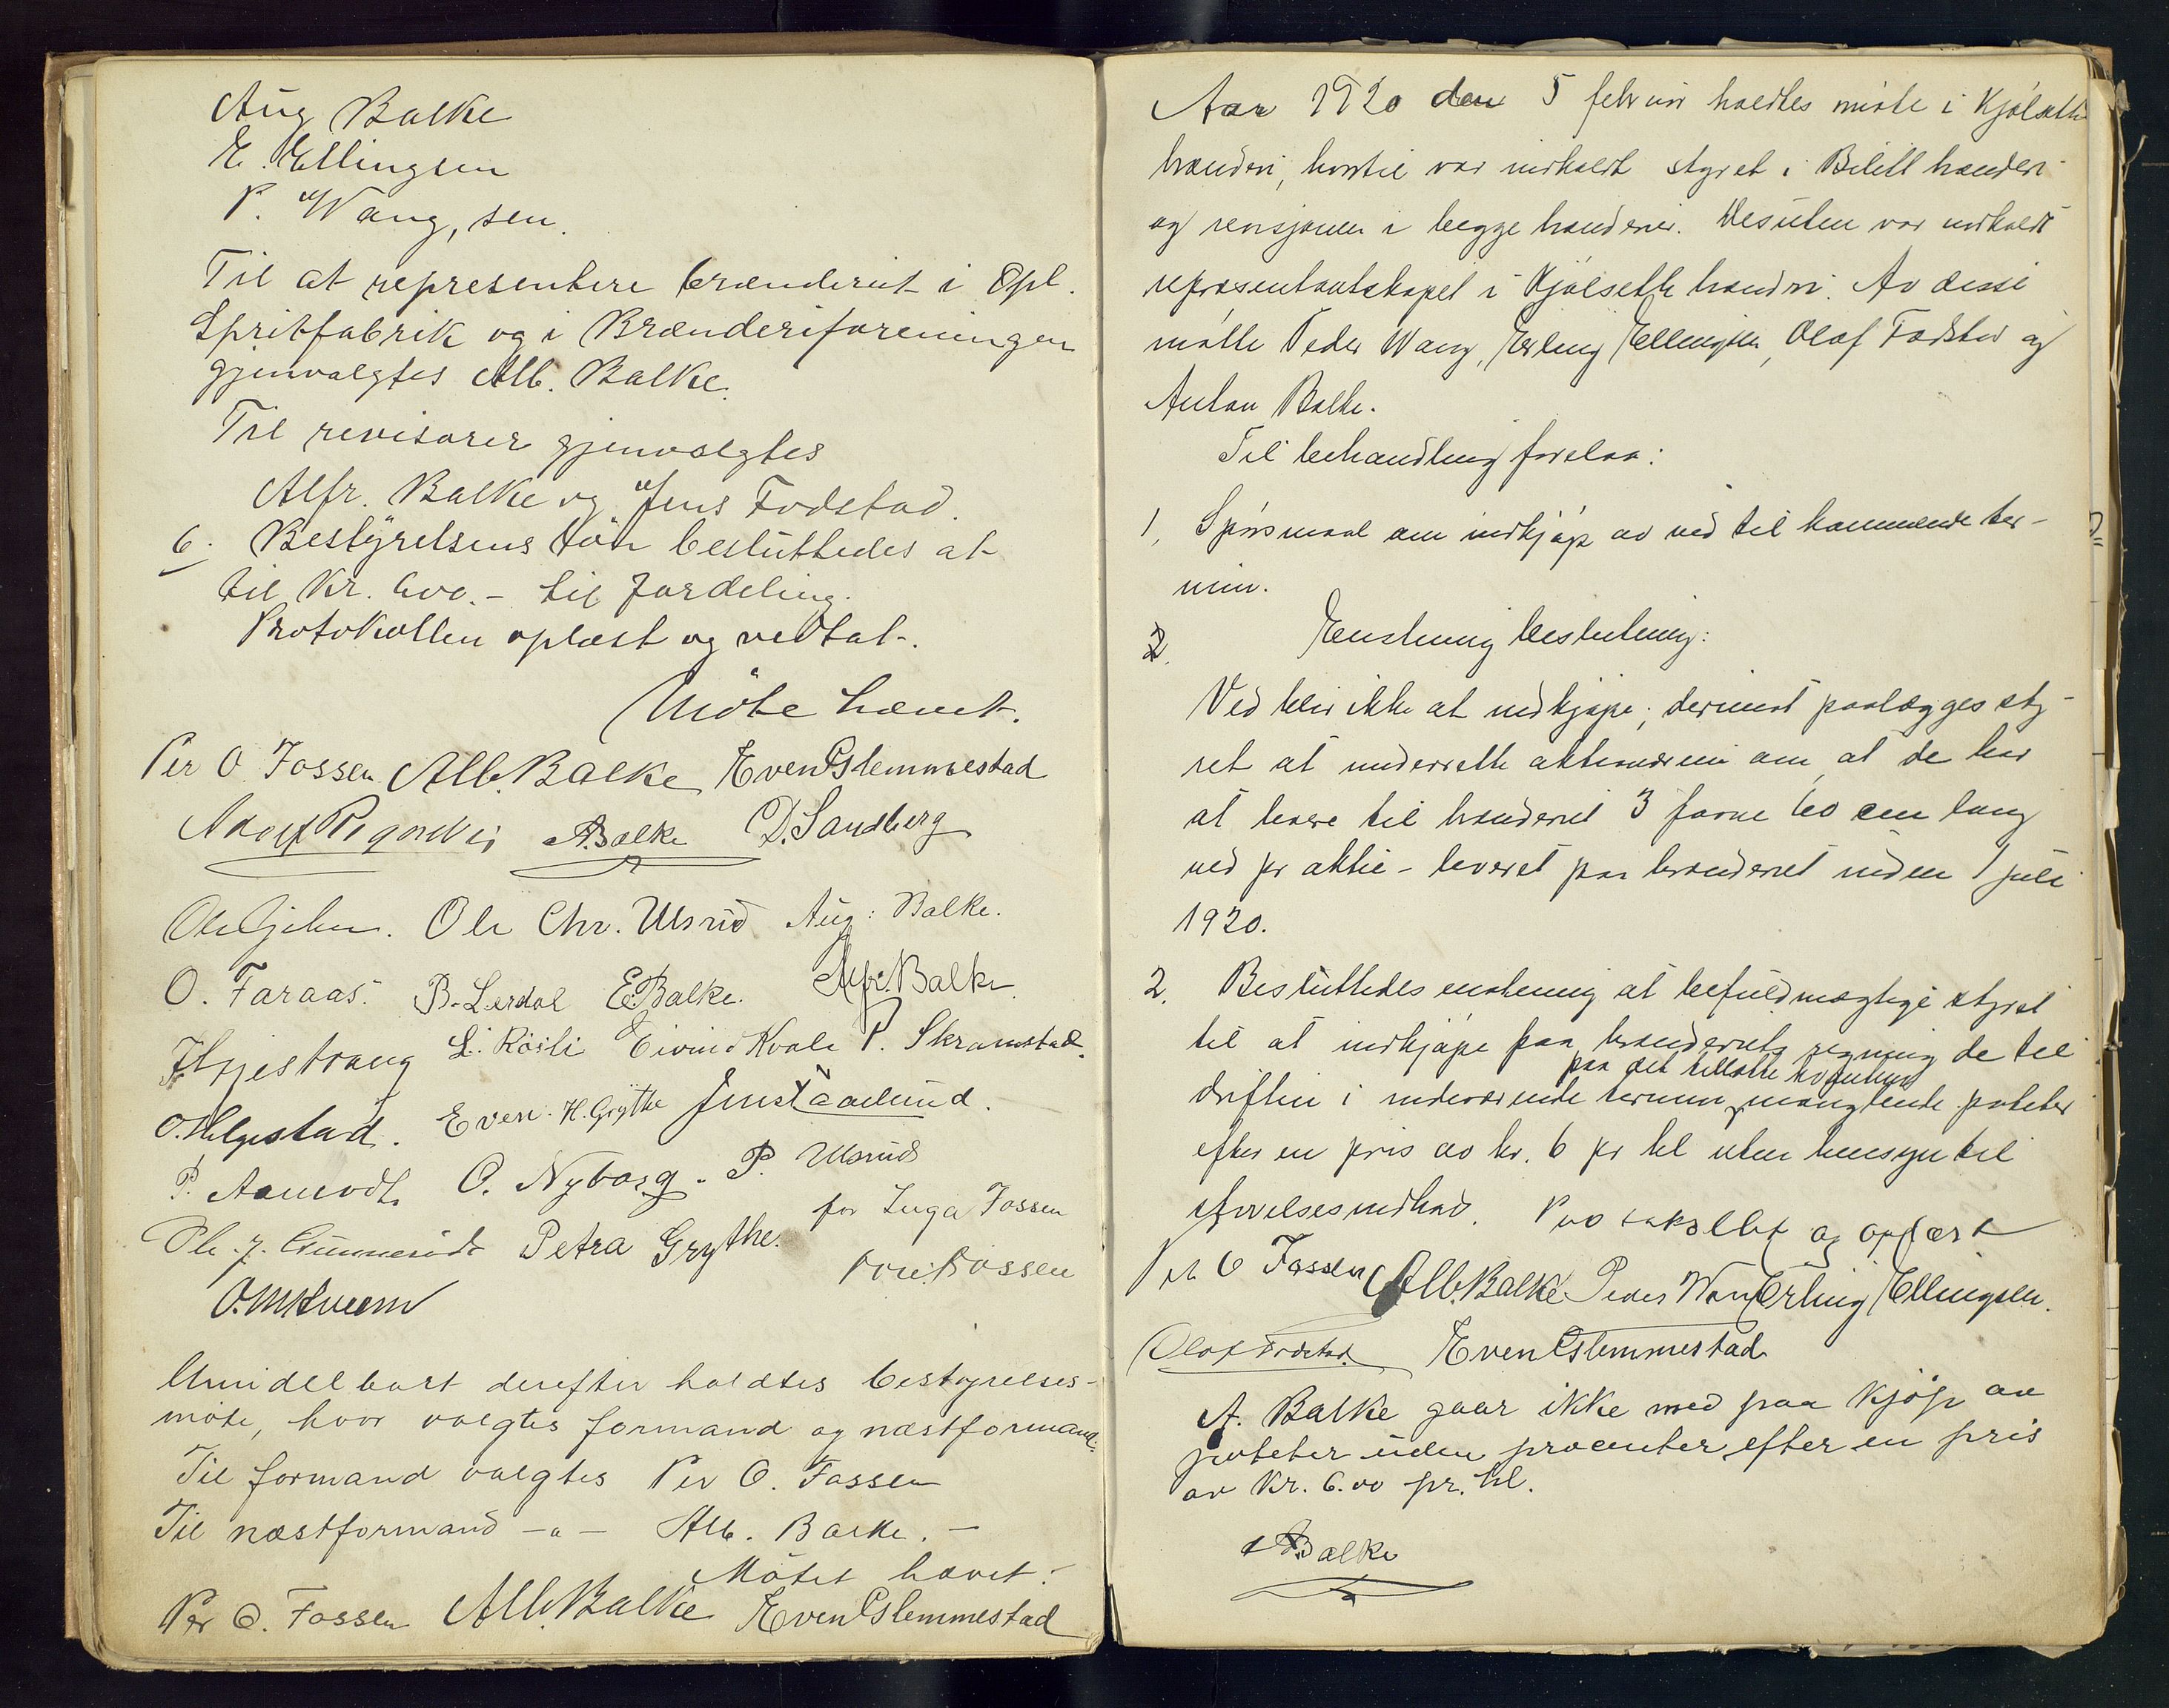 Aug Balke
E. Ellingsen
P. Wang, sen.
Til at representere brænderiet i Opl.
Spritfabrik og i Brænderiforeningen
gjenvalgtes Alb. Balke.
Til revisorer gjenvalgtes
Alfr. Balke og Jens Fodstad.
6. Bestyrelsens lön besluttedes at
til Kr. 600.- til fordeling.
Protokollen oplæst og vedtat.
Möte hævet.
Per O Fossen Alb. Balke Even Gslemmestad
A. Balke D. Sandberg
Ole Gjilen. Ole Chr. Ulsrud Aug: Balke.
O. Faraas. B. Lerdal E. Balke. Alfr. Balke
L. Röisli Eivind Kvale P. Skramstad.
O. Helgestad. Even H. Grythe Jens Taarlund.
P. Aamodt O. Nyborg. P. Ulsrud
Ole J. Gunnerud Petra Grythe. for Inga Fossen
Fossen
Umidelbart derefter holdtes bestyrelses-
möte, hvor valgtes formand og næstformand.
Til formand valgtes Per O. Fossen
Til næstformand -"- Alb. Balke. -
Mötet hævet.
Per O. Fossen Alb. Balke Even Gslemmestad
Aar 1920 den 5 februar holdtes möte i Kjölseth
brænderi, hvortil var indkaldt styret i Bilitt brænderi
og revisjonen i begge brænderier. Desuten var indkaldt
repræsentantskapet i Kjölseth brænderi. Av disse
mötte Peder Wang, Erling Ellingsen, Olaf Fodstad og
Anton Balke.
Til behandling forelaa:
1, Spörsmaal om indkjöp av ved til kommende ter-
min.
2. Enstemmig beslutning:
Ved blir ikke at indkjöpe; derimot paalægges sty-
ret at underrette aktionærene om, at de har
at levere til brænderiet 3 favne 60 cm lang
ved pr aktie - leveret paa brænderiet inden 1 juli
1920.
2. Besluttedes enstemmig at befuldmægtige styret
til at indkjöpe paa brænderiets regning de til
paa det tillatte kvantum
driften i indeværende termin manglende poteter
efter en pris av kr. 6 pr hl uten hensyn til
stivelsesindhold. Protokollet og oplæst
Per O Fossen Alb. Balke Peder Wang Erling Ellingsen.
Olaf Fodstad Even Gslemmestad
A. Balke gaar ikke med paa Kjöp av
poteter uden procenter efter en pris
av Kr. 6.00 pr. hl.
A Balke